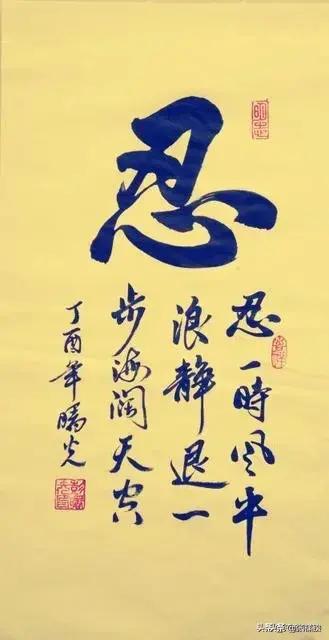 忍
忍一時风平
浪靜退一
步海阔天空
丁酉年光
头条